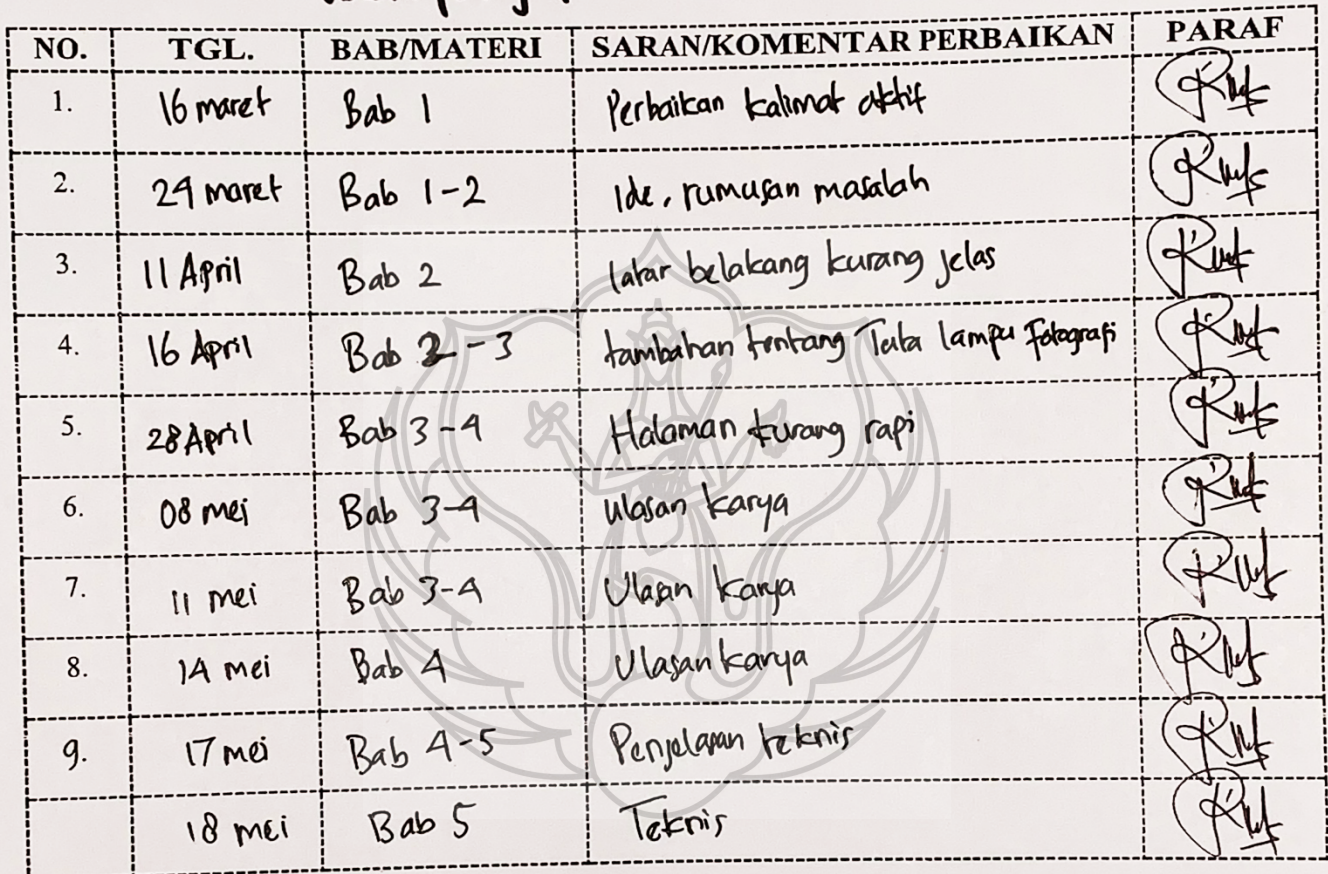 NO. TGL. BAB/MATERI SARAN/KOMENTAR PERBAIKAN PARAF
1. 16 maret Bab 1 Perbaikan kalimat aktif
2. 29 maret Bab 1-2 Ide, rumusan masalah
3. 11 April Bab 2 latar belakang kurang jelas
4. 16 April Bab 2-3 tambahan tentang Tata lampu Fotografi
5. 28 April Bab 3-4 Halaman kurang rapi
6. 08 mei Bab 3-4 ulasan karya
7. 11 mei Bab 3-4 Ulasan karya
8. 14 mei Bab 4 Ulasan karya
9. 17 mei Bab 4-5 Penjelasan teknis
18 mei Bab 5 Teknis